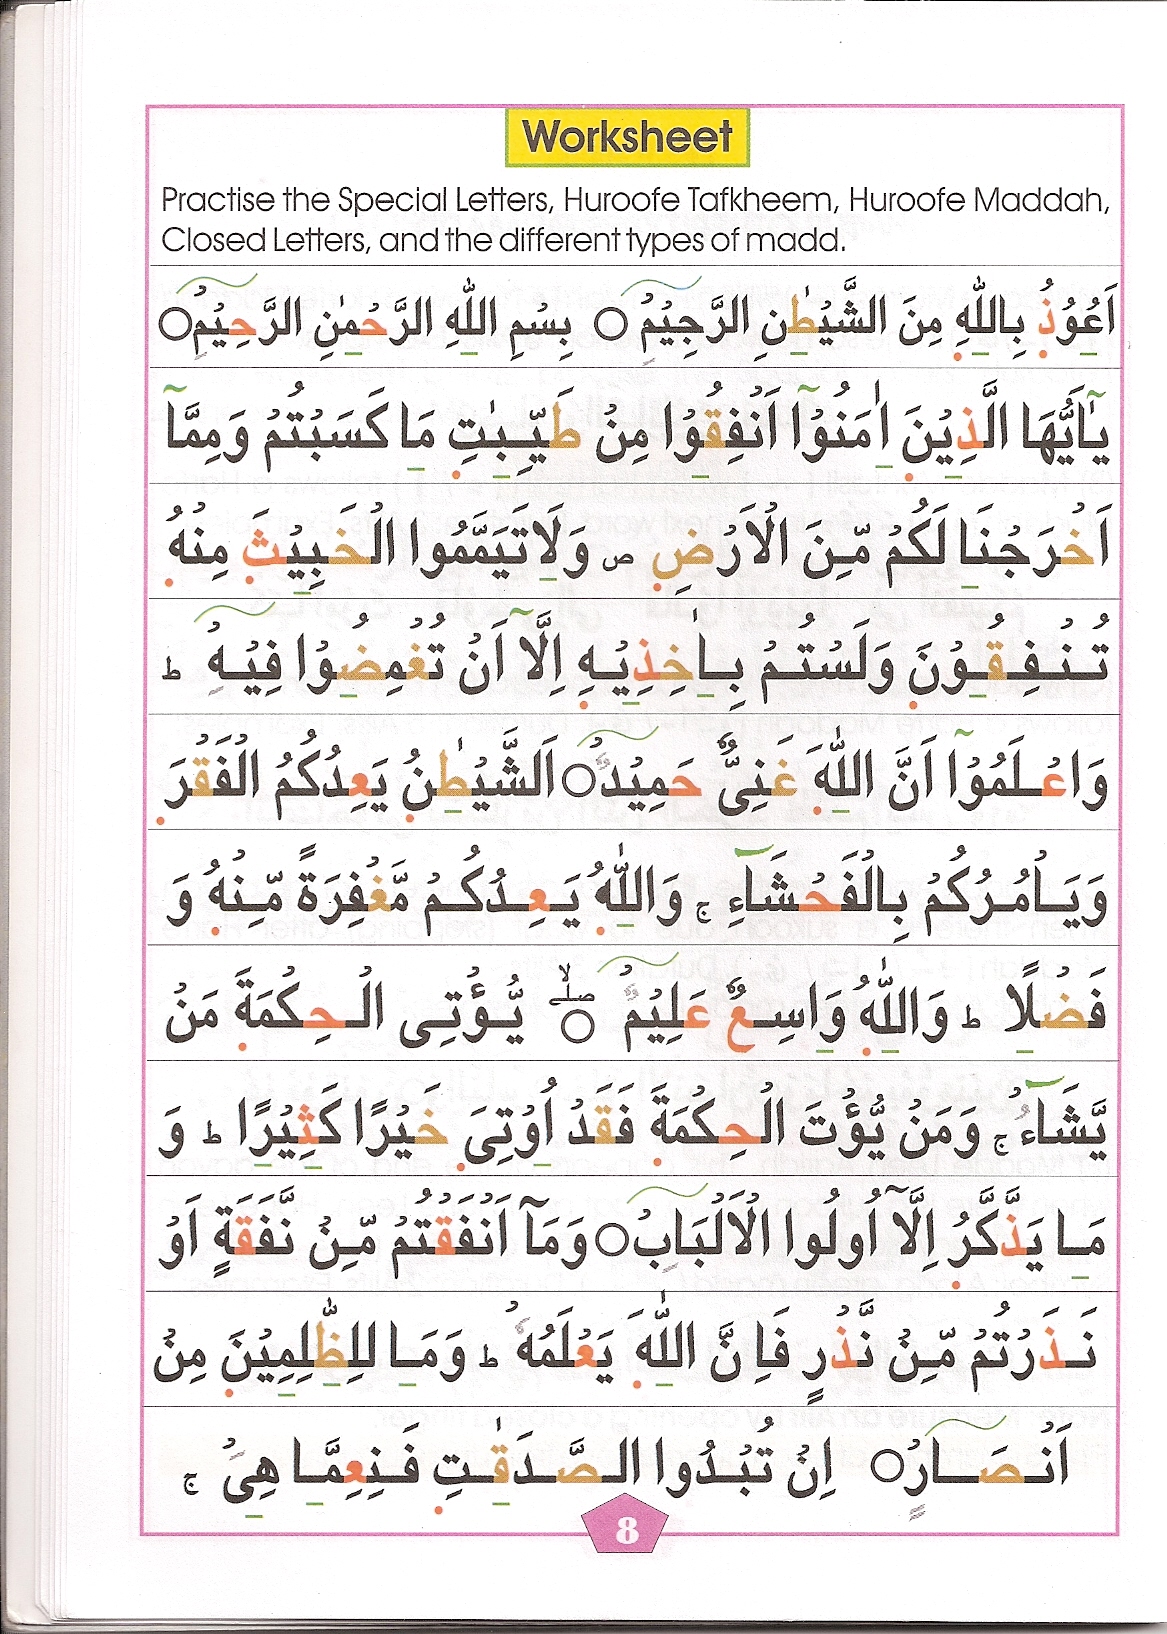 Worksheet
Practise the Special Letters, Huroofe Tafkheem, Huroofe Maddah,
Closed Letters, and the different types of madd.
اَعُوْذُ بِاللّٰهِ مِنَ الشَّيْطٰنِ الرَّجِيْمِ ○ بِسْمِ اللّٰهِ الرَّحْمٰنِ الرَّحِيْمِ ○
يٰٓاَيُّهَا الَّذِيْنَ اٰمَنُوْآ اَنْفِقُوْا مِنْ طَيِّبٰتِ مَا كَسَبْتُمْ وَمِمَّآ
اَخْرَجْنَا لَكُمْ مِّنَ الْاَرْضِ ص وَلَا تَيَمَّمُوا الْخَبِيْثَ مِنْهُ
تُنْفِقُوْنَ وَلَسْتُمْ بِاٰخِذِيْهِ اِلَّآ اَنْ تُغْمِضُوْا فِيْهِ ط
وَاعْلَمُوْآ اَنَّ اللّٰهَ غَنِىٌّ حَمِيْدٌ ○ اَلشَّيْطٰنُ يَعِدُكُمُ الْفَقْرَ
وَيَاْمُرُكُمْ بِالْفَحْشَآءِ ج وَاللّٰهُ يَعِدُكُمْ مَّغْفِرَةً مِّنْهُ وَ
فَضْلًا ط وَاللّٰهُ وَاسِعٌ عَلِيْمٌ ○ صلے لا يُّؤْتِى الْحِكْمَةَ مَنْ
يَّشَآءُ ج وَمَنْ يُّؤْتَ الْحِكْمَةَ فَقَدْ اُوْتِىَ خَيْرًا كَثِيْرًا ط وَ
مَا يَذَّكَّرُ اِلَّآ اُولُوا الْاَلْبَابِ ○ وَمَآ اَنْفَقْتُمْ مِّنْ نَّفَقَةٍ اَوْ
نَذَرْتُمْ مِّنْ نَّذْرٍ فَاِنَّ اللّٰهَ يَعْلَمُهٗ ط وَمَا لِلظّٰلِمِيْنَ مِنْ
اَنْصَارٍ ○ اِنْ تُبْدُوا الصَّدَقٰتِ فَنِعِمَّا هِىَ ج
8